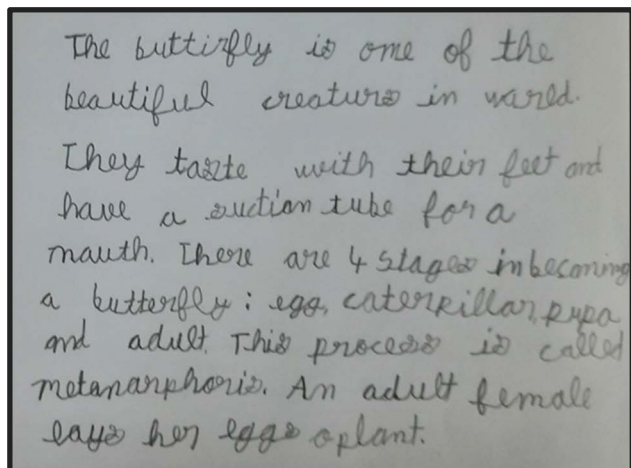 The buttirfly is one of the
beautiful creature in wareld.
They taste with their feet and
have a suction tube for a
mauth. There are 4 stages in becoming
a butterfly : egg, caterpillar, pupa
and adult. This process is called
metanarphoris. An adult female
lays her eggs o plant.